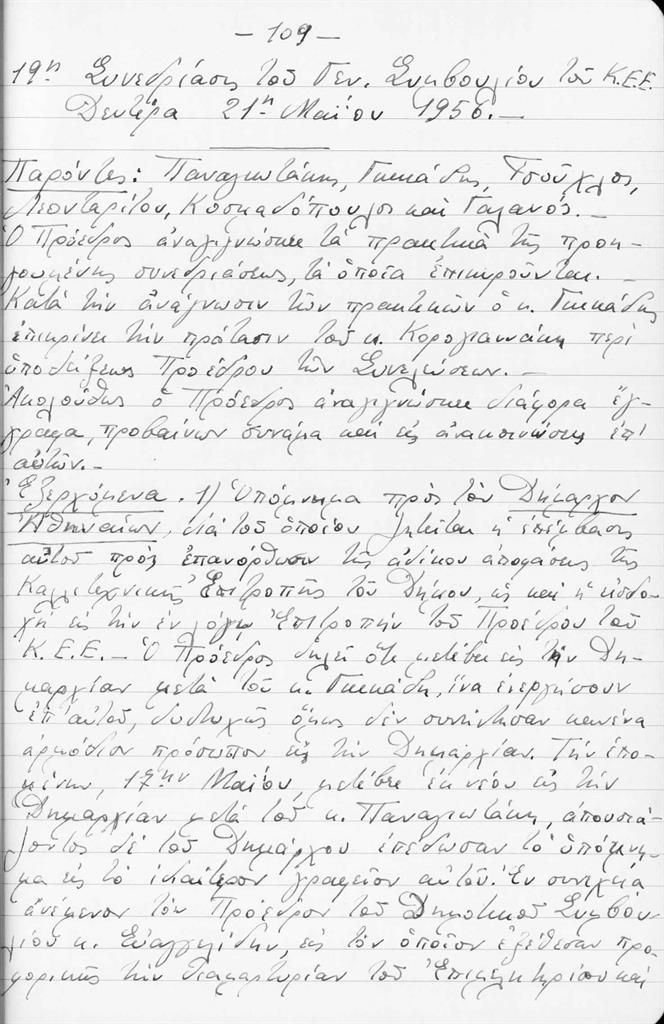 - 109 -
19η Συνεδρίασις τοῦ Γεν. Συμβουλίου τοῦ Κ.Ε.Ε.
Δευτέρα 21η Μαΐου 1956.-
Παρόντες: Παναγιωτάκης, Γκικάδης, Τσοῦχλος,
Λεονταρίτου, Κοσκαδόπουλος καὶ Γαλανός.-
Ὁ Πρόεδρος ἀναγιγνώσκει τὰ πρακτικὰ τῆς προη-
γουμένης συνεδριάσεως, τὰ ὁποῖα ἐπικυροῦνται.-
Κατὰ τὴν ἀνάγνωσιν τῶν πρακτικῶν ὁ κ. Γκικάδης
ἐπικρίνει τὴν πρότασιν τοῦ κ. Κορογιαννάκη περὶ
ὑποδείξεως Προέδρου τῶν Συνελεύσεων.-
Ἀκολούθως ὁ Πρόεδρος ἀναγιγνώσκει διάφορα ἔγ-
γραφα, προβαίνων συνάμα καὶ εἰς ἀνακοινώσεις ἐπ'
αὐτῶν.-
Ἐξερχόμενα. 1) Ὑπόμνημα πρὸς τὸν Δήμαρχον
Ἀθηναίων, διὰ τοῦ ὁποίου ζητεῖται ἡ ἐπέμβασις
αὐτοῦ πρὸς ἐπανόρθωσιν τῆς ἀδίκου ἀποφάσεως τῆς
Καλλιτεχνικῆς Ἐπιτροπῆς τοῦ Δήμου, ὡς καὶ ἡ εἰσδο-
χὴ εἰς τὴν ἐν λόγῳ Ἐπιτροπὴν τοῦ Προέδρου τοῦ
Κ.Ε.Ε.- Ὁ Πρόεδρος δηλεῖ ὅτι μετέβη εἰς τὴν Δη-
μαρχίαν μετὰ τοῦ κ. Γκικάδη, ἵνα ἐνεργήσουν
ἐπ' αὐτοῦ, δυστυχῶς ὅμως δὲν συνήντησαν κανένα
ἁρμόδιον πρόσωπον εἰς τὴν Δημαρχίαν. Τὴν ἑπο-
μένην, 17ην Μαΐου, μετέβη ἐκ νέου εἰς τὴν
Δημαρχίαν μετὰ τοῦ κ. Παναγιωτάκη, ἀπουσιά-
ζοντος δὲ τοῦ Δημάρχου ἐπέδωσαν τὸ ὑπόμνη-
μα εἰς τὸ ἰδιαίτερον γραφεῖον αὐτοῦ. Ἐν συνεχείᾳ
ἀνέμενον τὸν Πρόεδρον τοῦ Δημοτικοῦ Συμβου-
λίου κ. Εὐαγγελίδην, εἰς τὸν ὁποῖον ἐξέθεσαν προ-
φορικῶς τὴν διαμαρτυρίαν τοῦ Ἐπιμελητηρίου καὶ